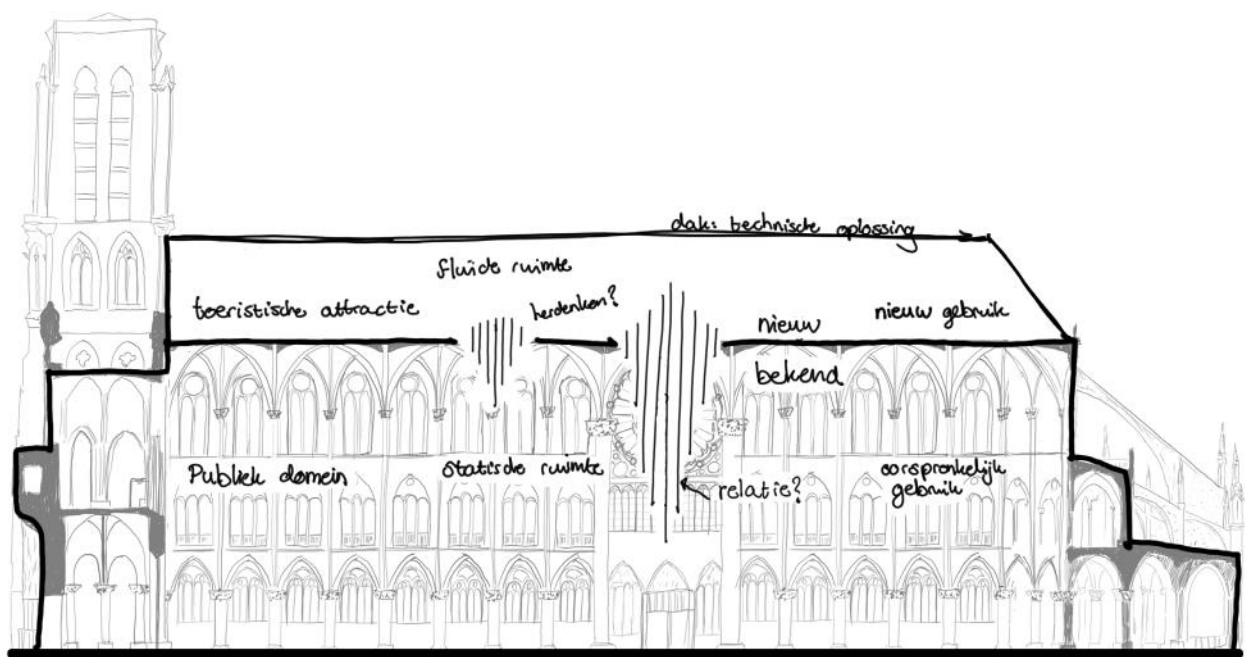 dak: technische oplossing
fluide ruimte
toeristische attractie
herdenken?
nieuw
nieuw gebruik
bekend
Publiek domein
statische ruimte
relatie?
oorspronkelijk
gebruik